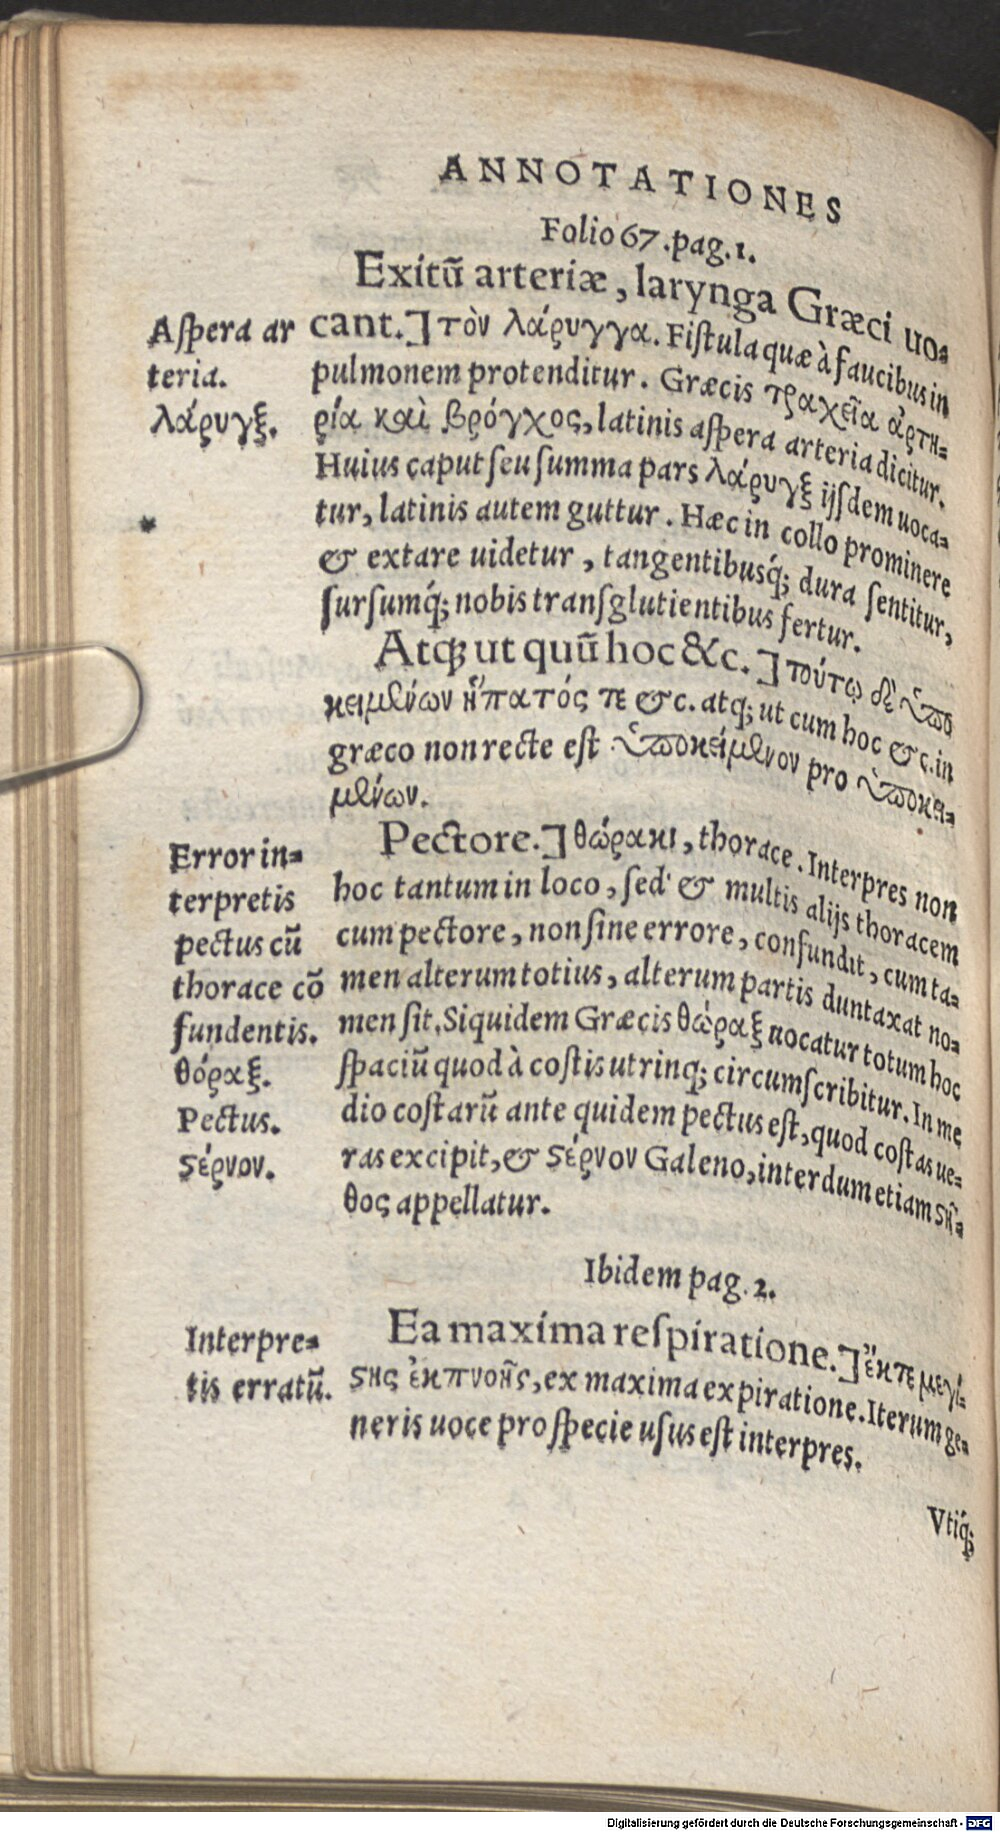 ANNOTATIONES
Folio 67. pag. 1.
Exitũ arteriæ, larynga Græci uo-
cant.] τὸν λάρυγγα. Fistula quæ à faucibus in
pulmonem protenditur. Græcis τραχεῖα ἀρτη-
ρία καὶ βρόγχος, latinis aspera arteria dicitur.
Huius caput seu summa pars λάρυγξ ijsdem uoca-
tur, latinis autem guttur. Hæc in collo prominere
& extare uidetur, tangentibusq́; dura sentitur,
sursumq́; nobis transglutientibus fertur.
Aspera ar
teria.
λάρυγξ.
*
Atq; ut quũ hoc &c.] τούτῳ δὲ ὑπο
κειμένων ἥπατός τε &c. atq; ut cum hoc &c. in
græco non recte est ὑποκείμενον pro ὑποκει-
μένων.
Pectore.] θώρακι, thorace. Interpres non
hoc tantum in loco, sed & multis alijs thoracem
cum pectore, non sine errore, confundit, cum ta-
men alterum totius, alterum partis duntaxat no-
men sit. Siquidem Græcis θώραξ uocatur totum hoc
spaciũ quod à costis utrinq; circumscribitur. In me
dio costarũ ante quidem pectus est, quod costas ue-
ras excipit, & ϛέρνον Galeno, interdum etiam ϛῆ-
θος appellatur.
Error in-
terpretis
pectus cũ
thorace cõ
fundentis.
θόραξ.
Pectus.
ϛέρνον.
Ibidem pag. 2.
Ea maxima respiratione.] ἔκ τε μεγί-
ϛης ἐκπνοῆς, ex maxima expiratione. Iterum ge-
neris uoce pro specie usus est interpres.
Interpre-
tis erratũ.
Vtiq́;
Digitalisierung gefördert durch die Deutsche Forschungsgemeinschaft - DFG